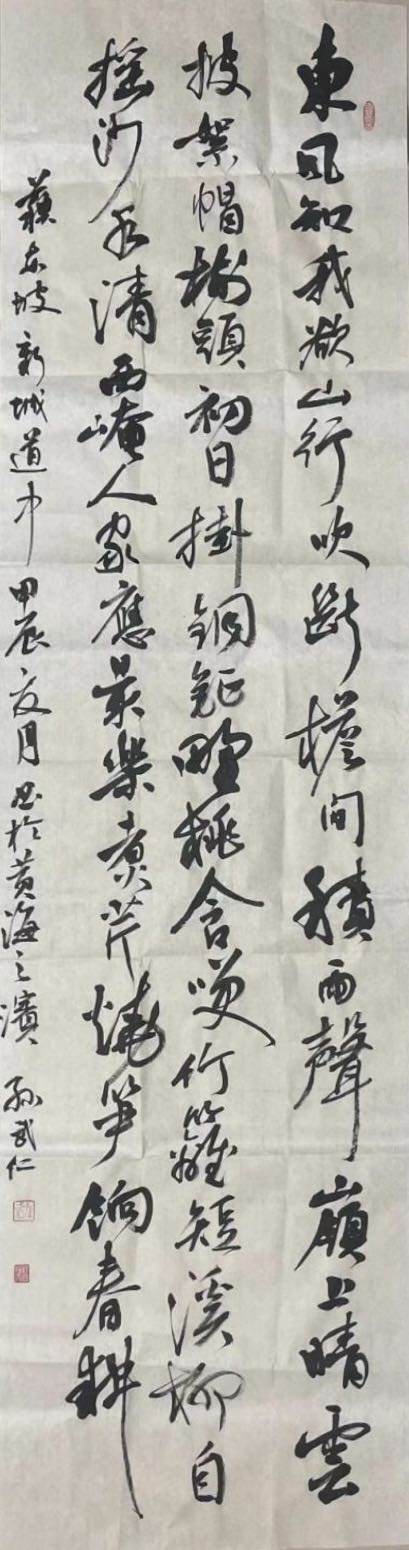 東風知我欲山行吹斷檐間積雨聲嶺上晴雲
披絮帽樹頭初日掛銅鉦野桃含笑竹籬短溪柳自
搖沙水清西崦人家應最樂煮芹燒笋餉春耕
蘇東坡新城道中甲辰夏月書於黃海之濱孫武仁